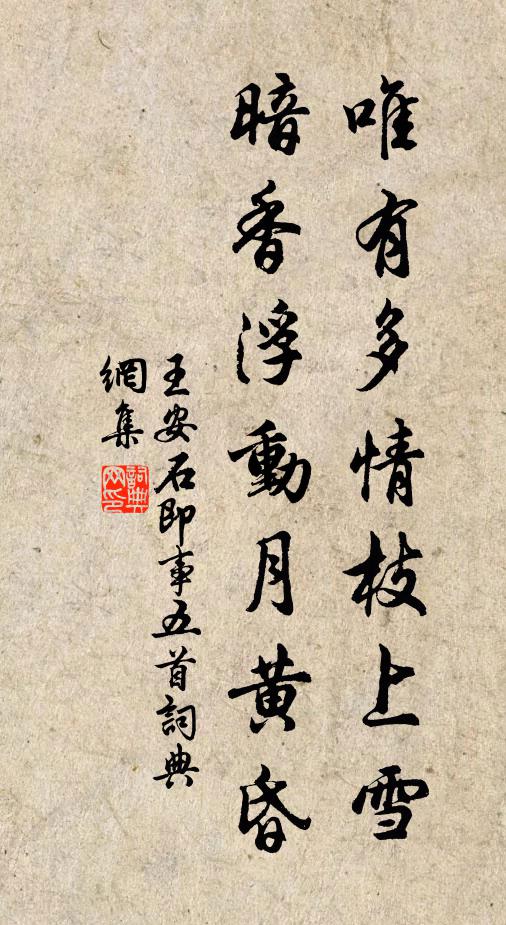 唯有多情枝上雪
暗香浮動月黃昏
王安石即事五首詞典
網集
詞典
网印